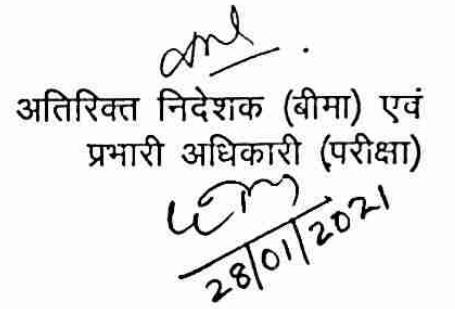 अतिरिक्त निदेशक (बीमा) एवं
प्रभारी अधिकारी (परीक्षा)
28/01/2021